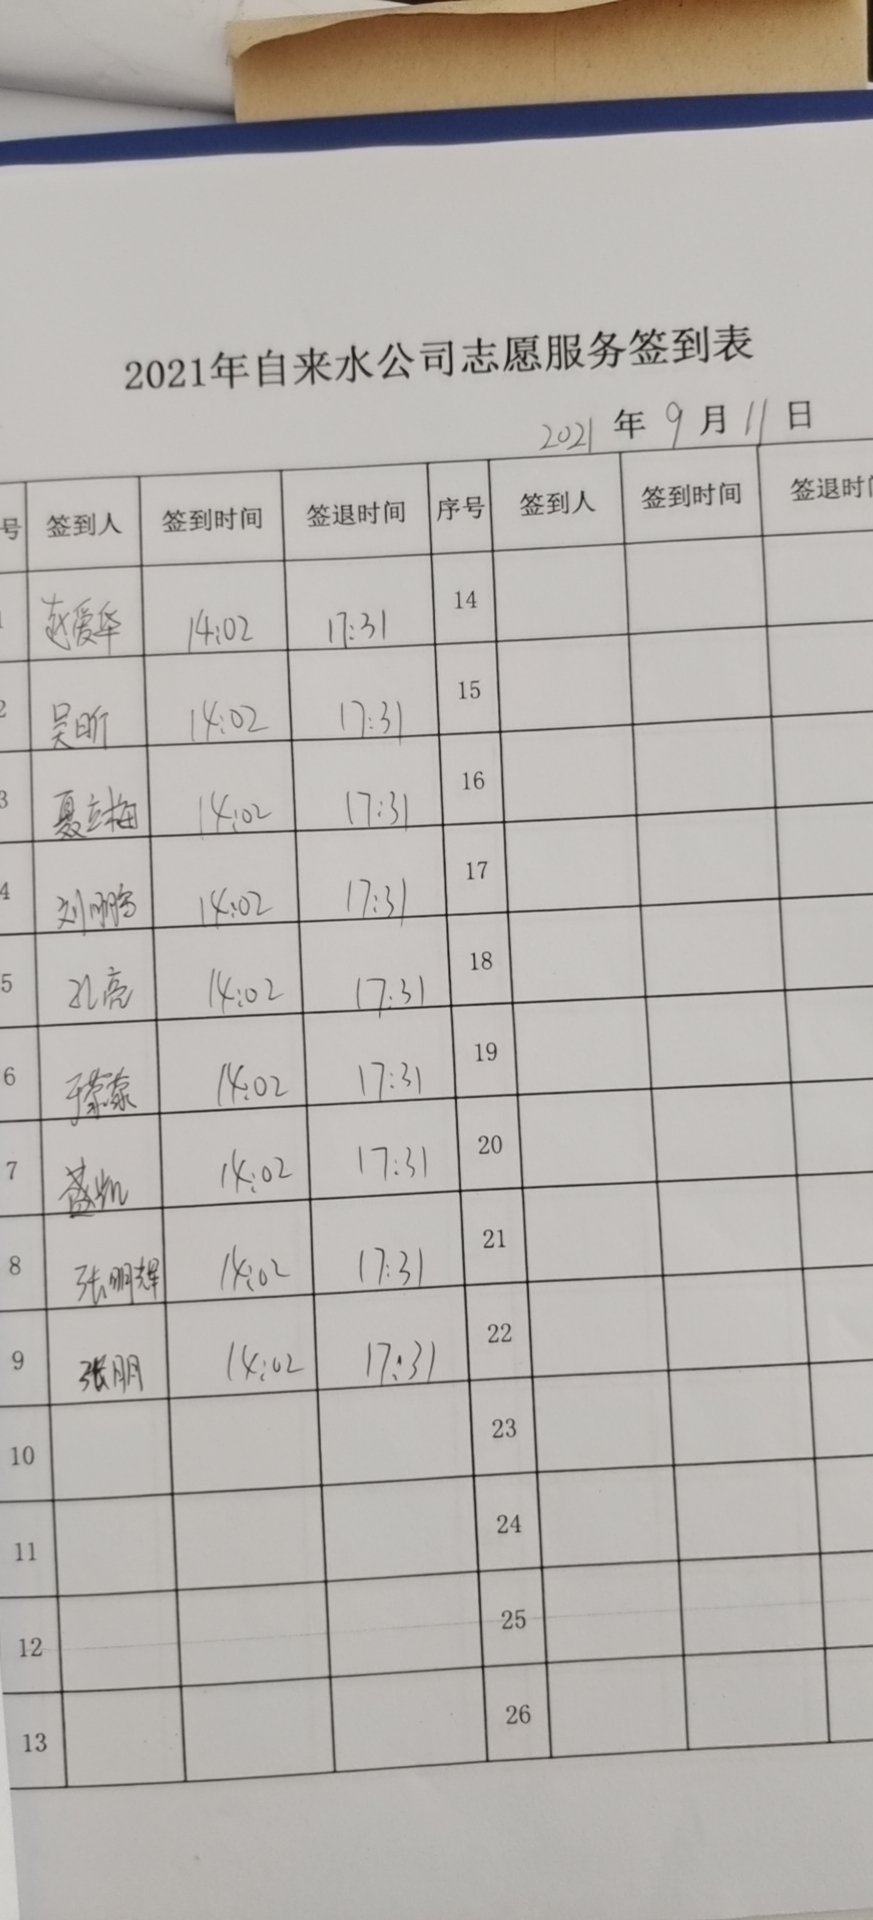 2021年自来水公司志愿服务签到表
2021 年 9 月 11 日
号 签到人 签到时间 签退时间 序号 签到人 签到时间 签退时间
1 赵爱华 14:02 17:31 14
2 吴昕 14:02 17:31 15
3 夏立梅 14:02 17:31 16
4 刘鹏 14:02 17:31 17
5 孔亮 14:02 17:31 18
6 于蒙蒙 14:02 17:31 19
7 盛凯 14:02 17:31 20
8 张明辉 14:02 17:31 21
9 张朋 14:02 17:31 22
10 23
11 24
12 25
13 26